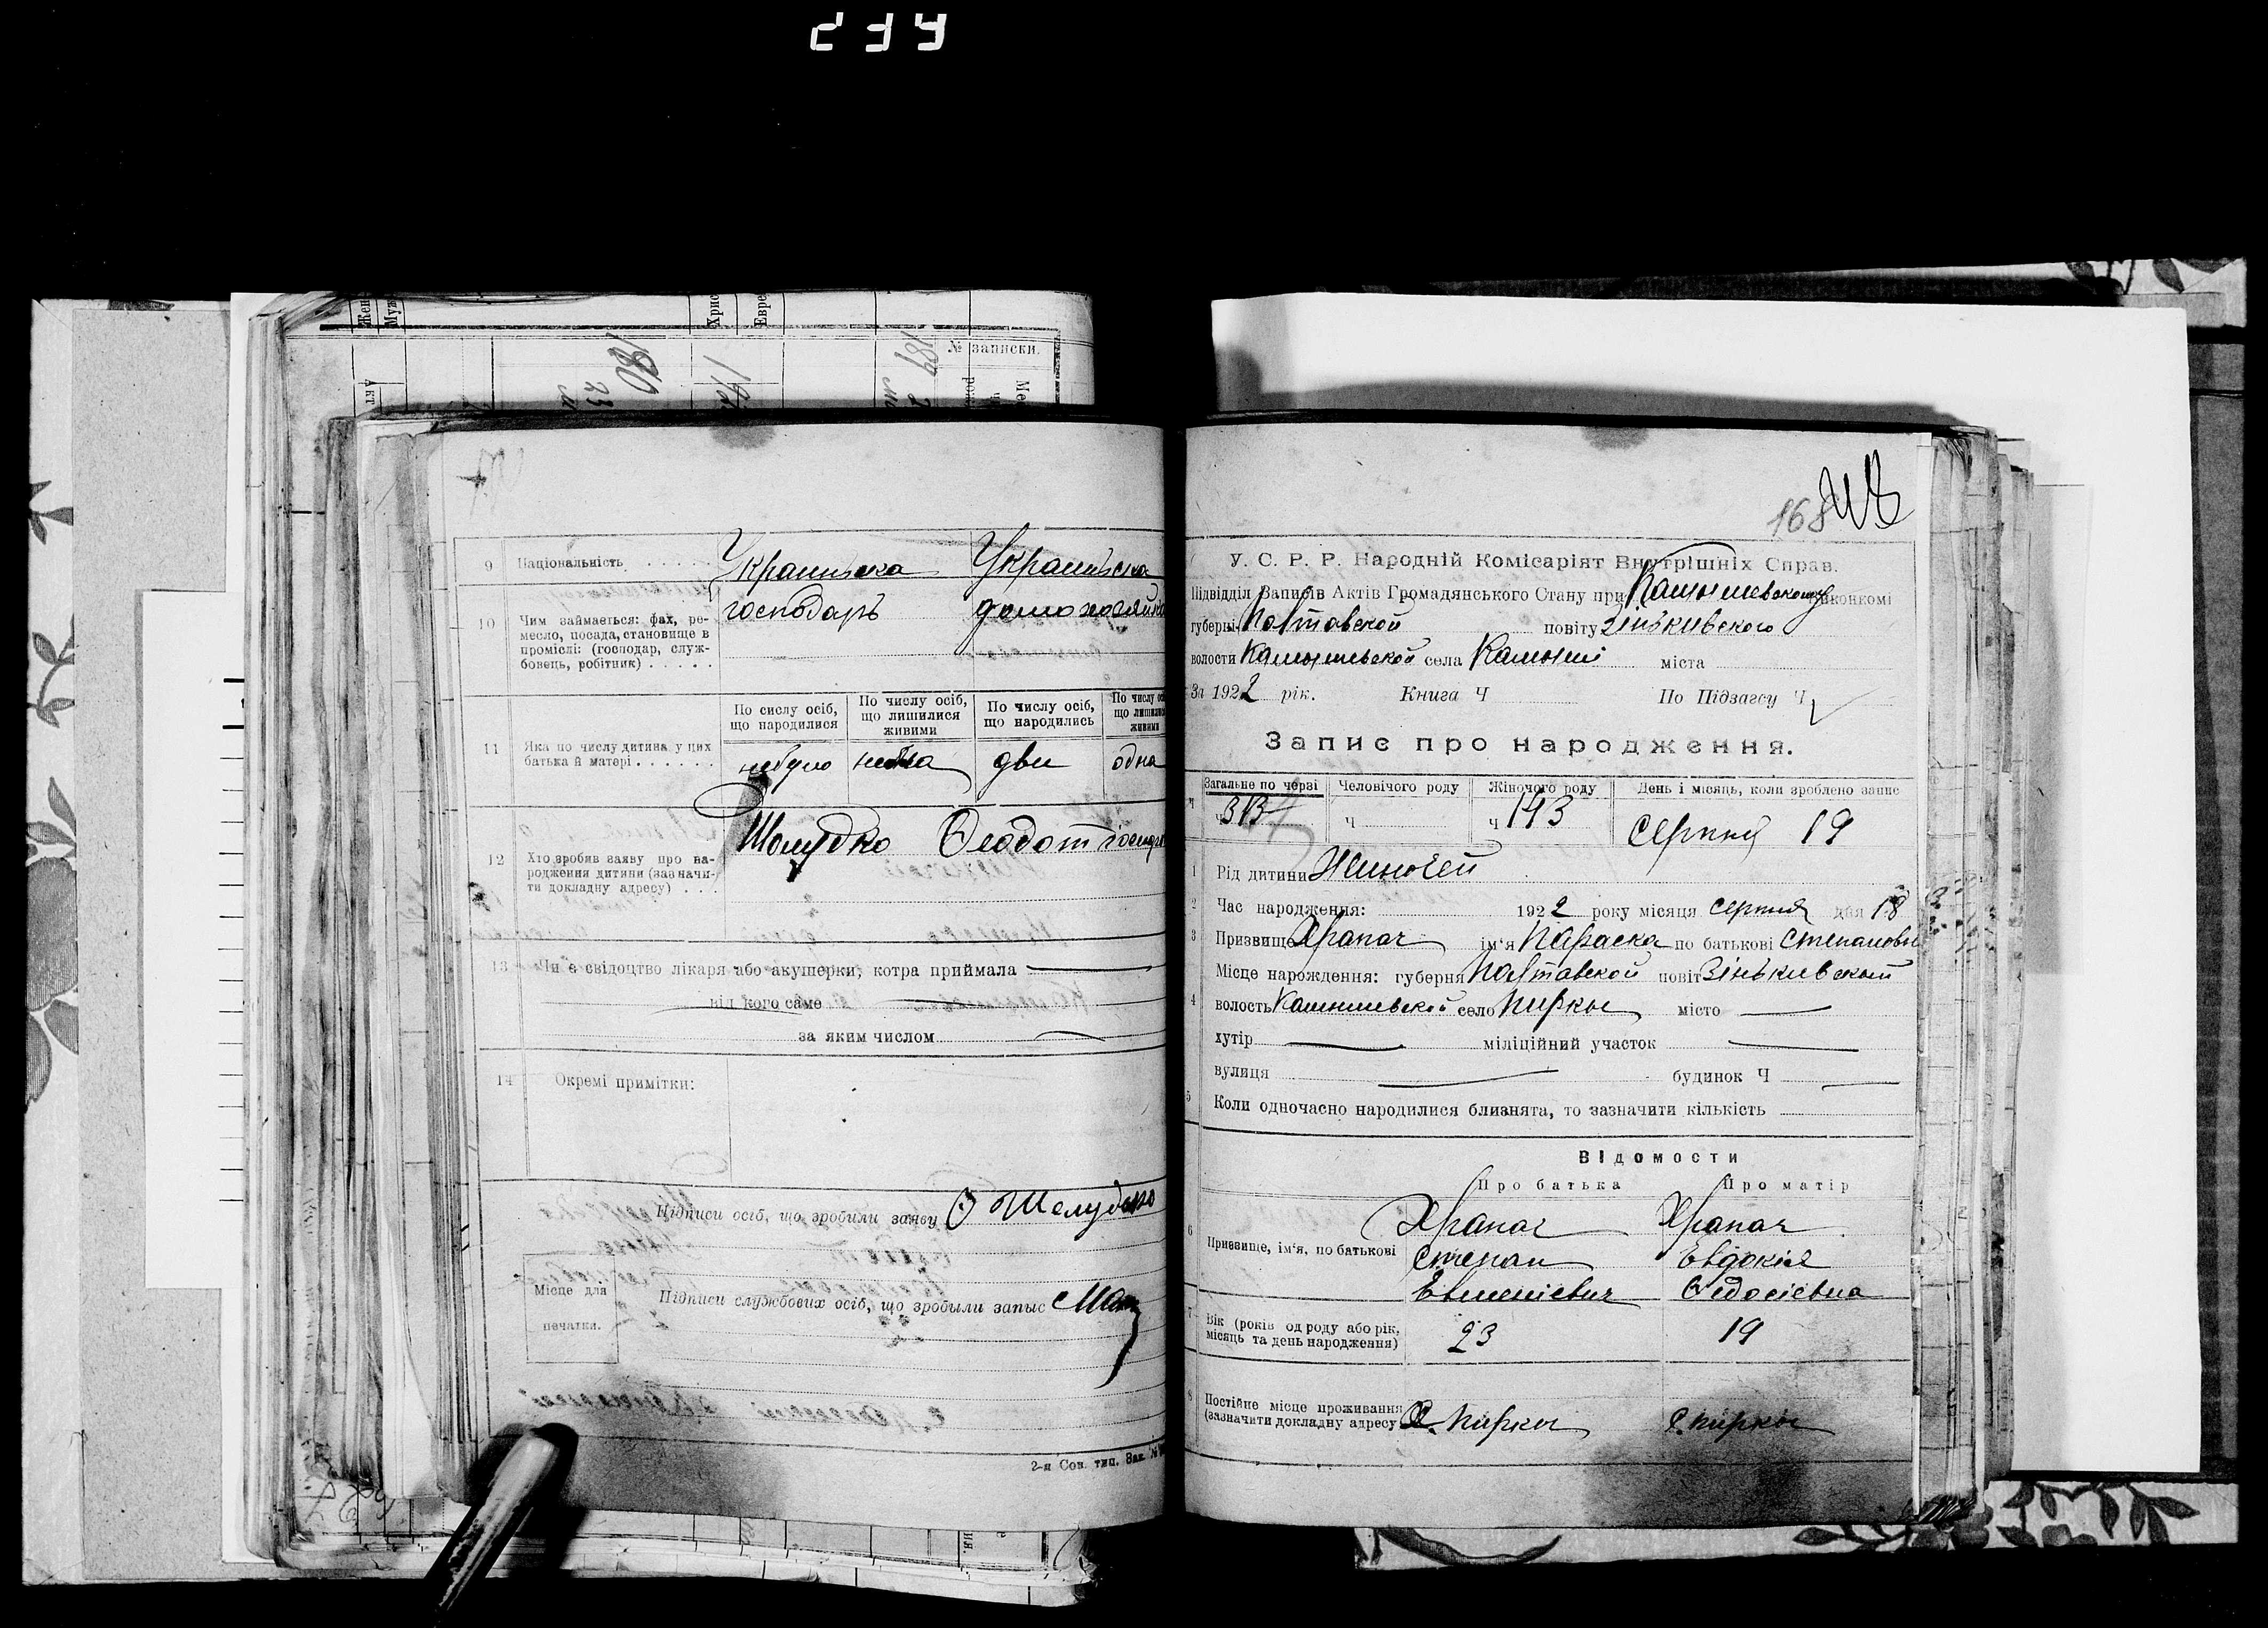 239
Жен
Муж
Хрис
Евре
180
189
№ записки.
9 Національність . . . . . Украинська Украинська
10 Чим займаеться: фах, ре-
месло, посада, становище в
проміслі: (господар, служ-
бовець, робітник) . . . . .
господаръ домохозяйка
По сислу осіб,
що народилися
По числу осіб,
що лишилися
живими
По числу осіб,
що народились
По числу осі
що лишили
живими
11 Яка по числу дитина у цих
батька й матері . . . . . .
небуло нема две одна
12 Хто зробив заяву про на-
родження дитини (зазначи-
ти докладну адресу) . . .
Шолудко Феодот господ
13 Чи є свідоцтво лікаря або акушерки, котра приймала
від кого саме
за яким числом
14 Окремі примітки:
Підписи осіб, що зробили заяву Ф Шелудько
Місце для
печатки.
Підписи службових осіб, що зробыли запыс
2-я Сов. тип. Зак. №
168
У. С. Р. Р. Народній Комісаріят Внутрішніх Справ.
Підвідділ Записів Актів Громадянського Стану при Камышевскому виконкомі
губерні Полтавской повіту Зіньківского
волости Камышевской села Камыші міста
За 1922 рік. Книга Ч По Підзагсу Ч
Запис про народження.
Загальне по черзі Человічого роду Жіночого роду День і місяць, коли зроблено запис
ч 313 ч ч 143 серпня 19
1 Рід дитини Жиночей
2 Час народження: 1922 року місяця серпня дня 18
3 Призвище Храпач ім'я Параска по батькові Степановн
4 Місце нарождення: губерня Полтавской повіт Зіньківской
волость Камышевской село Пирки місто
хутір міліційний участок
вулиця будинок Ч
5 Коли одночасно народилися близнята, то зазначити кількість
Відомости
Про батька Про матір
6 Призвище, ім'я, по батькові
Храпач Храпач
Степан Евдокія
Евменіевич Федосіевна
7 Вік (років од роду або рік,
місяць та день народження)
23 19
8 Постійне місце проживання
(зазначити докладну адресу)
С. Пирки С. Пирки